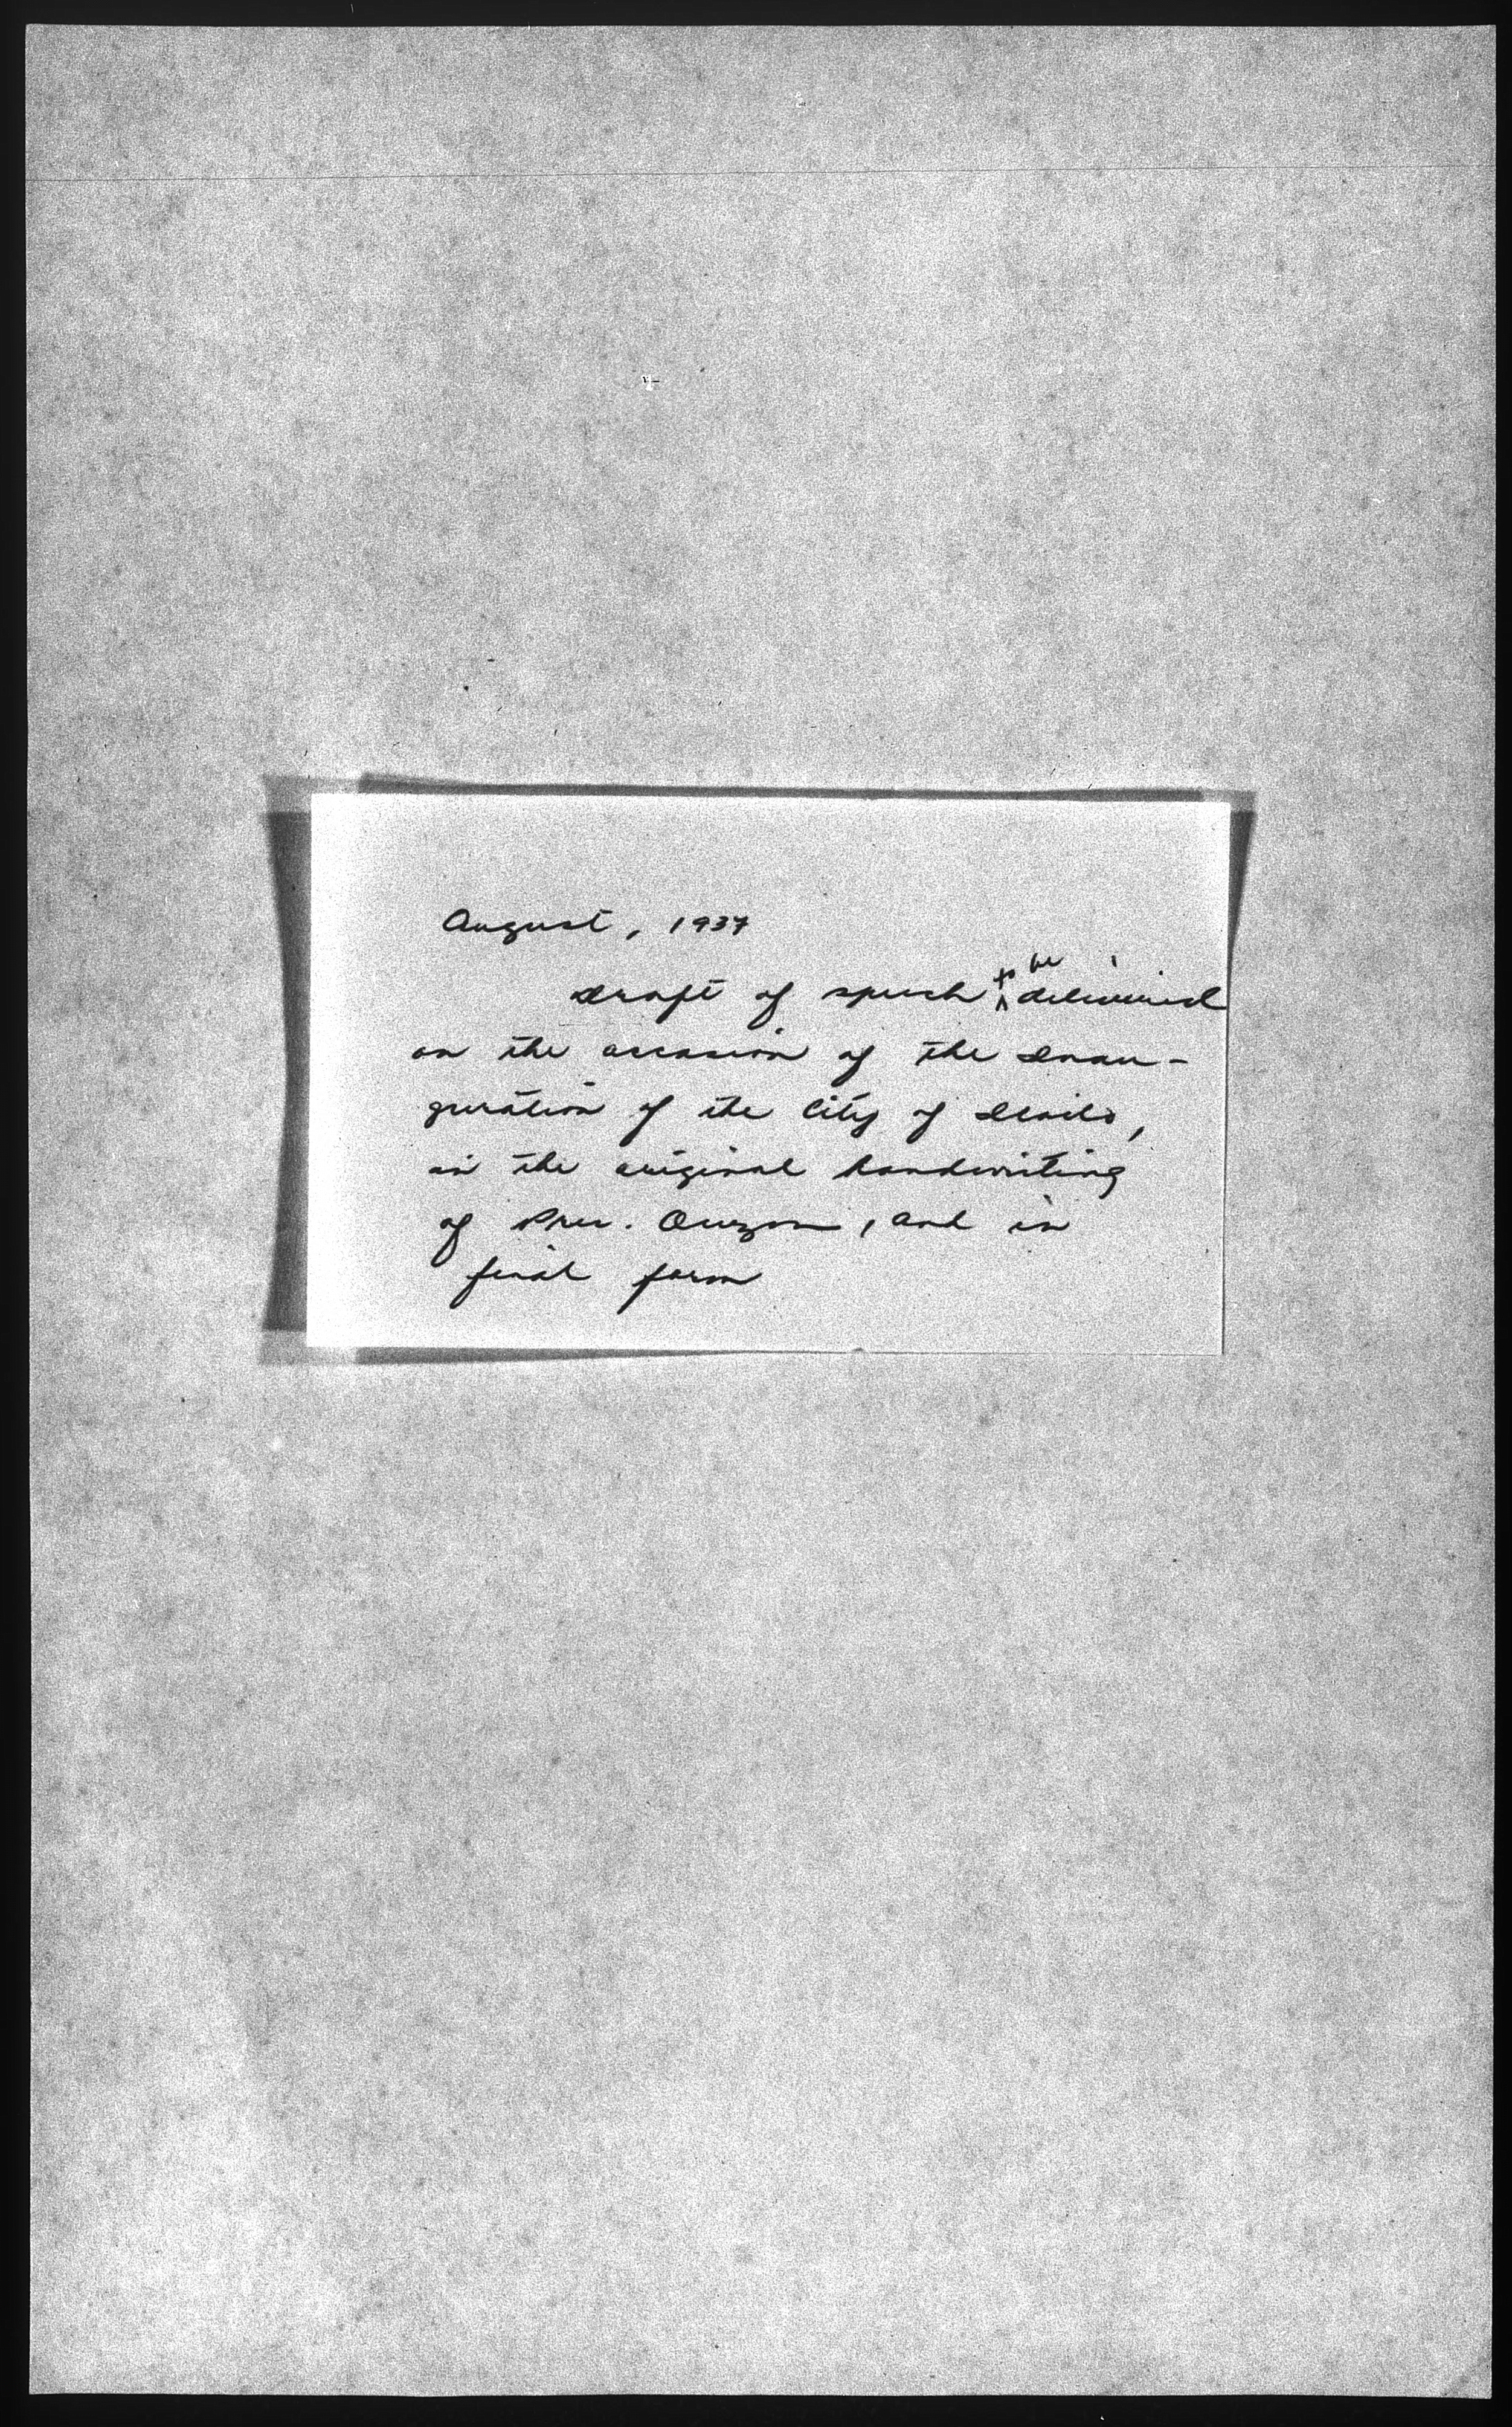 August, 1937
Draft of speech to be delivered
on the occasion of the Inau-
guration of the City of Iloilo,
in the original handwriting
of Pres. Quezon, and in
final form